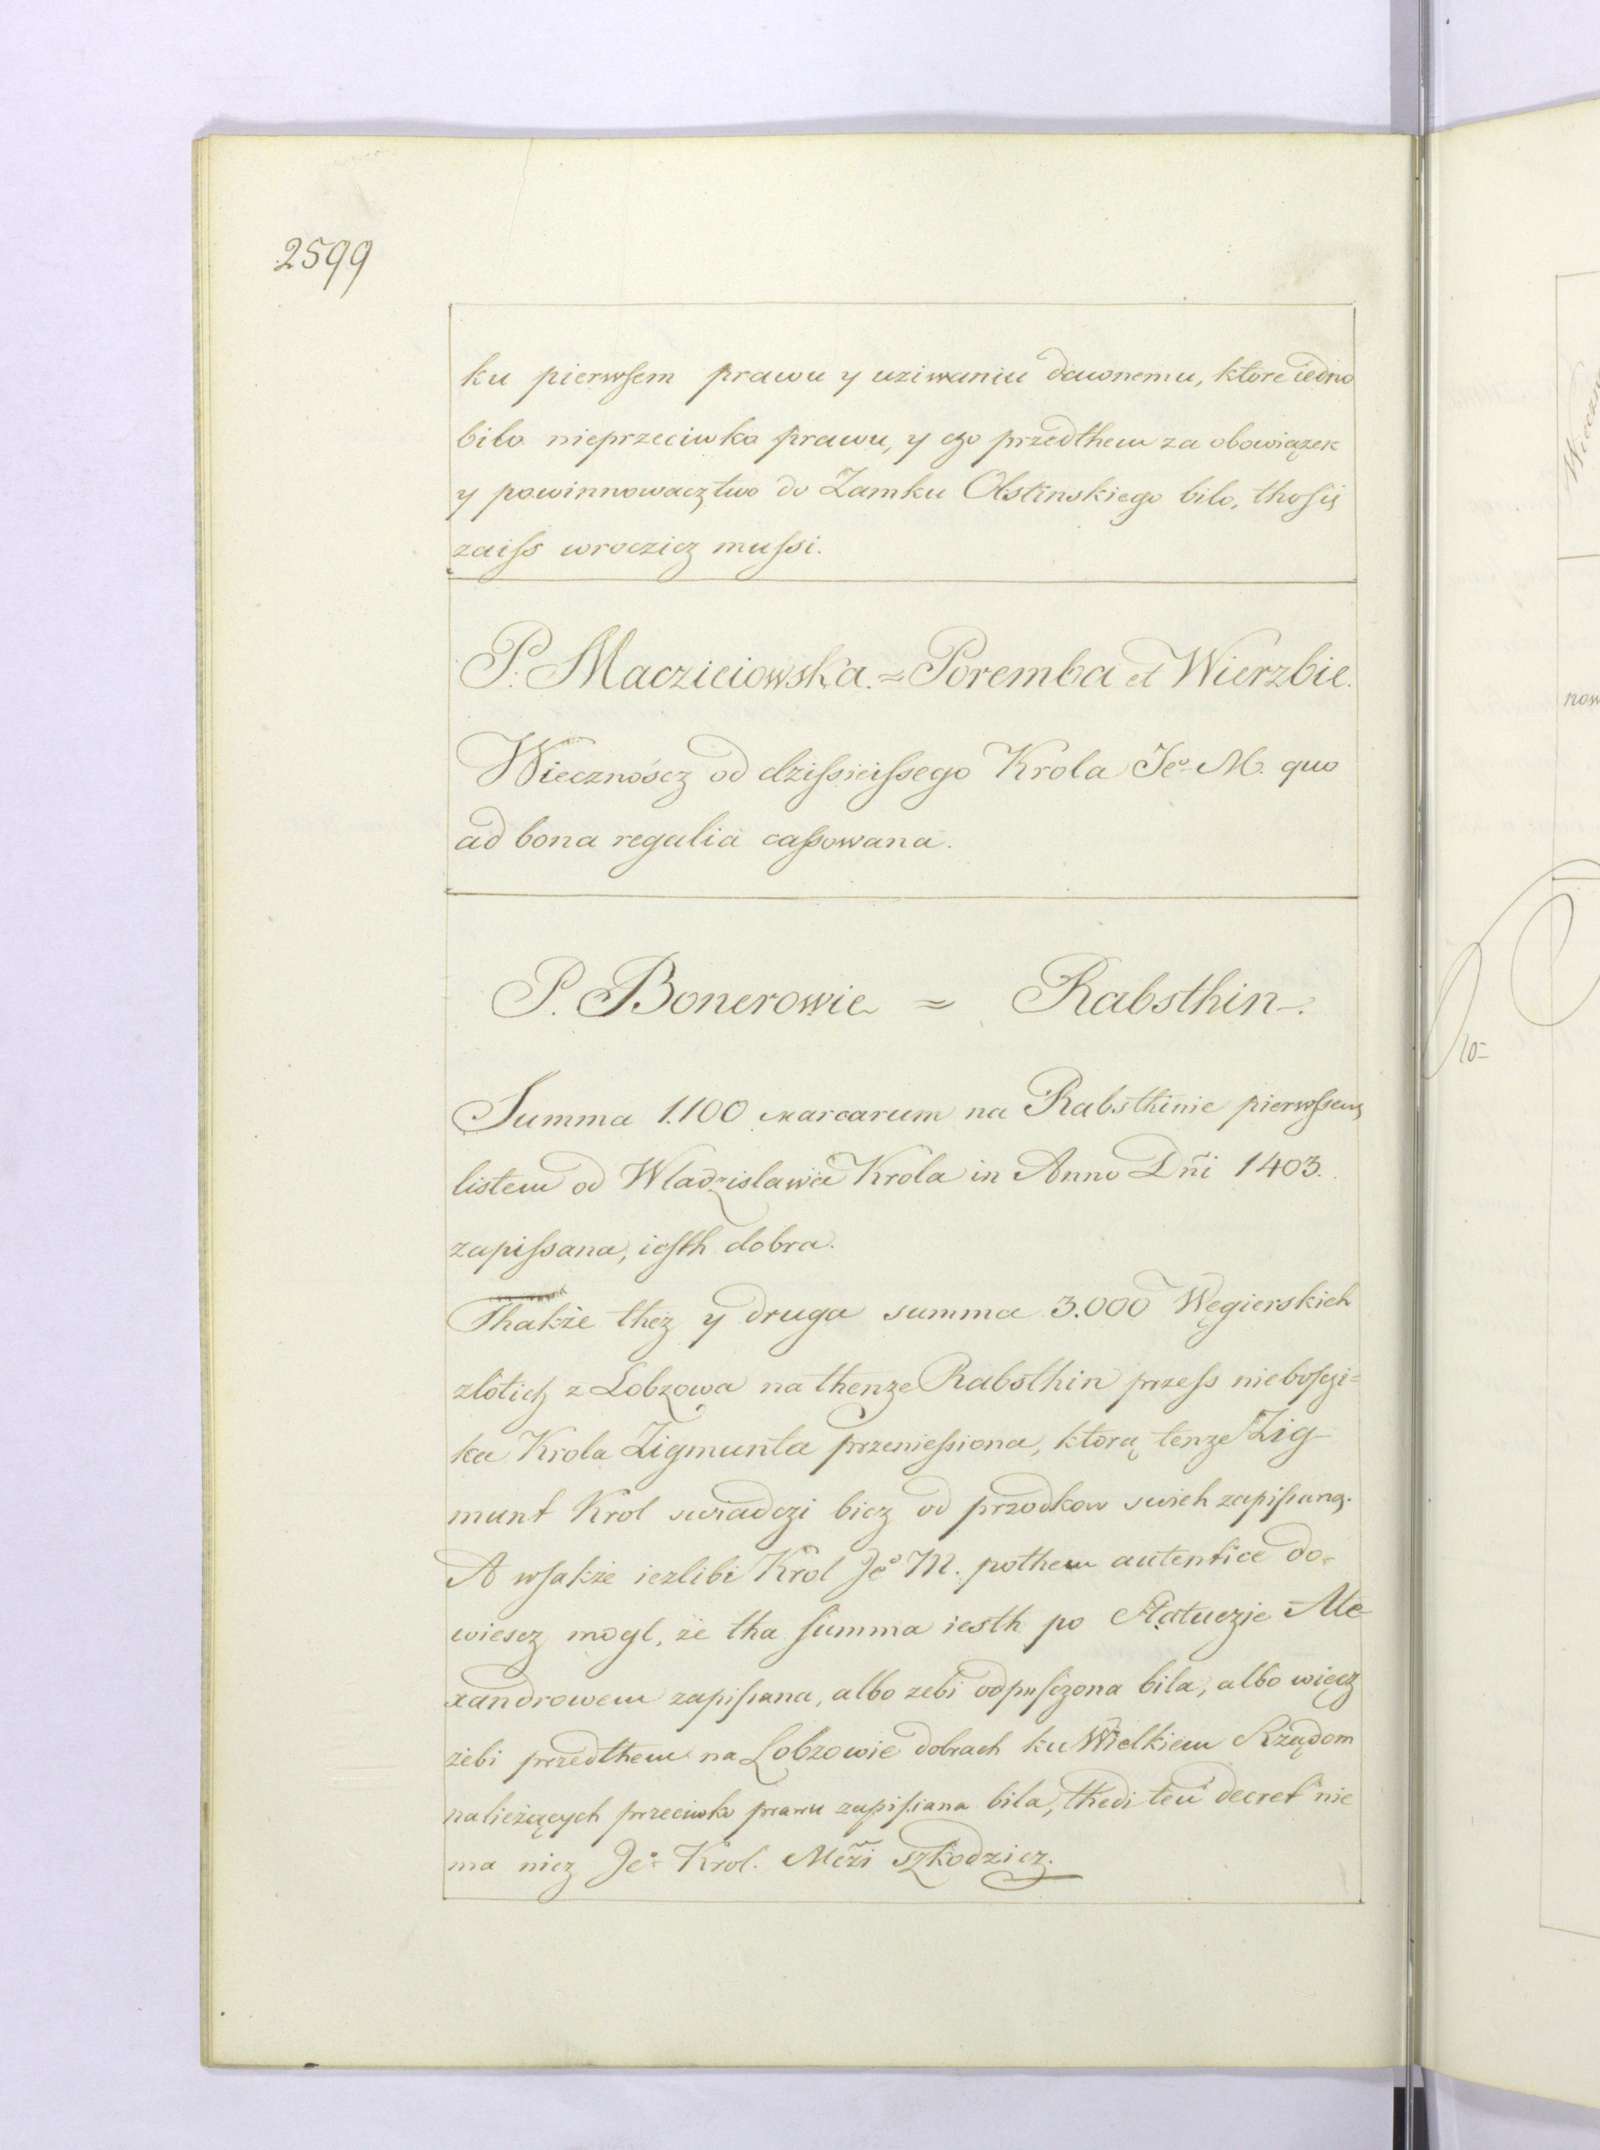 2599
ku pierwſem prawu y uziwaniu dawnemu, ktore iedno
bilo nieprzeciwko prawu, y czo przedthem za obowiązek
y powinnowacztwo do Zamku Olstinskiego bilo, thoſię
zaiſs wroczicz muſsi.
P. Macziciowska. = Poremba et Wierzbie.
Wiecznoścz od dziſsieiſsego Krola Jeº M. quo
ad bona regalia caſsowana.
P. Bonerowie = Rabsthin.
Summa 1.100 marcarum na Rabsthinie pierwſsem
listem od Wladzislawa Krola in Anno Dñi 1403.
zapiſsana, iesth dobra.
Thakże theż y druga summa 3.000 Węgierskich
zlotich z Lobzowa na thenze Rabsthin przeſs nieboſczi=
ka Krola Zigmunta przenieſsiona, ktorą tenze Zig-
munt Krol swiadczi bicz od przodkow swich zapiſsaną.
A wſakże iezlibi Krol Jeº M. pothem autentice do=
wiescz mogl, że tha ſumma iesth po Statuczie Ale-
xandrowem zapiſsana, albo zebi odpuſczona bila, albo więcz
żebi przedthem na Lobzowie dobrach ku Wielkiem Rządom
należących przeciwko prawu zapiſsana bila, thedi ten decret nie
ma nicz Jeº Krol. Mczi szkodzicz.
now
10=